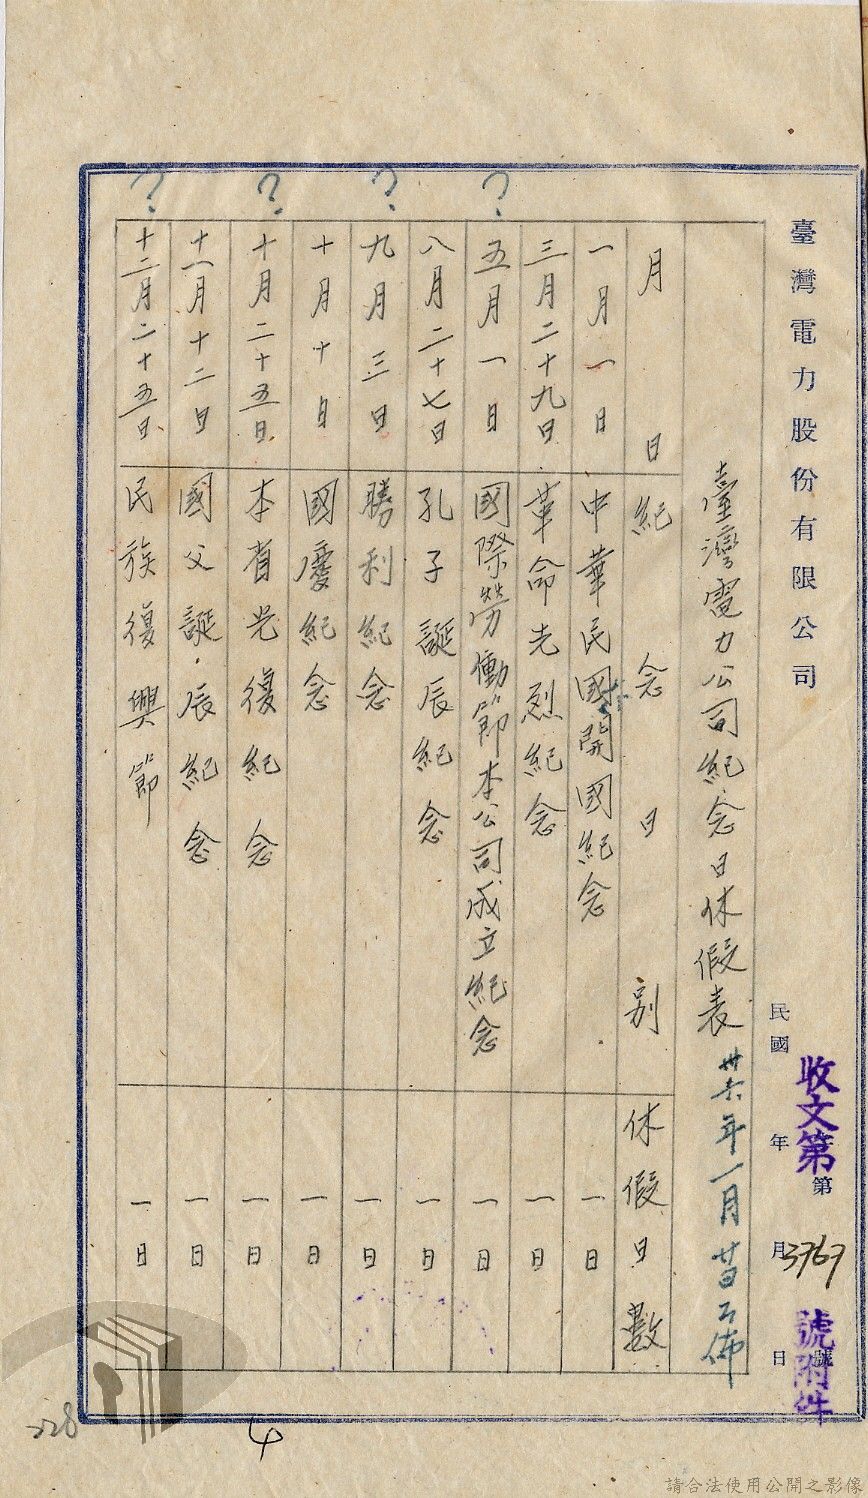 臺灣電力股份有限公司
民國 年 月 日
第 號
收文第
3767
號附件
臺灣電力公司紀念日休假表
卅六年一月 日公佈
月 日 紀念日別 休假日數
一月一日 中華民國開國紀念 一日
三月二十九日 革命先烈紀念 一日
? 五月一日 國際勞働節本公司成立紀念 一日
八月二十七日 孔子誕辰紀念 一日
? 九月三日 勝利紀念 一日
十月十日 國慶紀念 一日
? 十月二十五日 本省光復紀念 一日
十一月十二日 國父誕辰紀念 一日
? 十二月二十五日 民族復興節 一日
228
4
請合法使用公開之影像